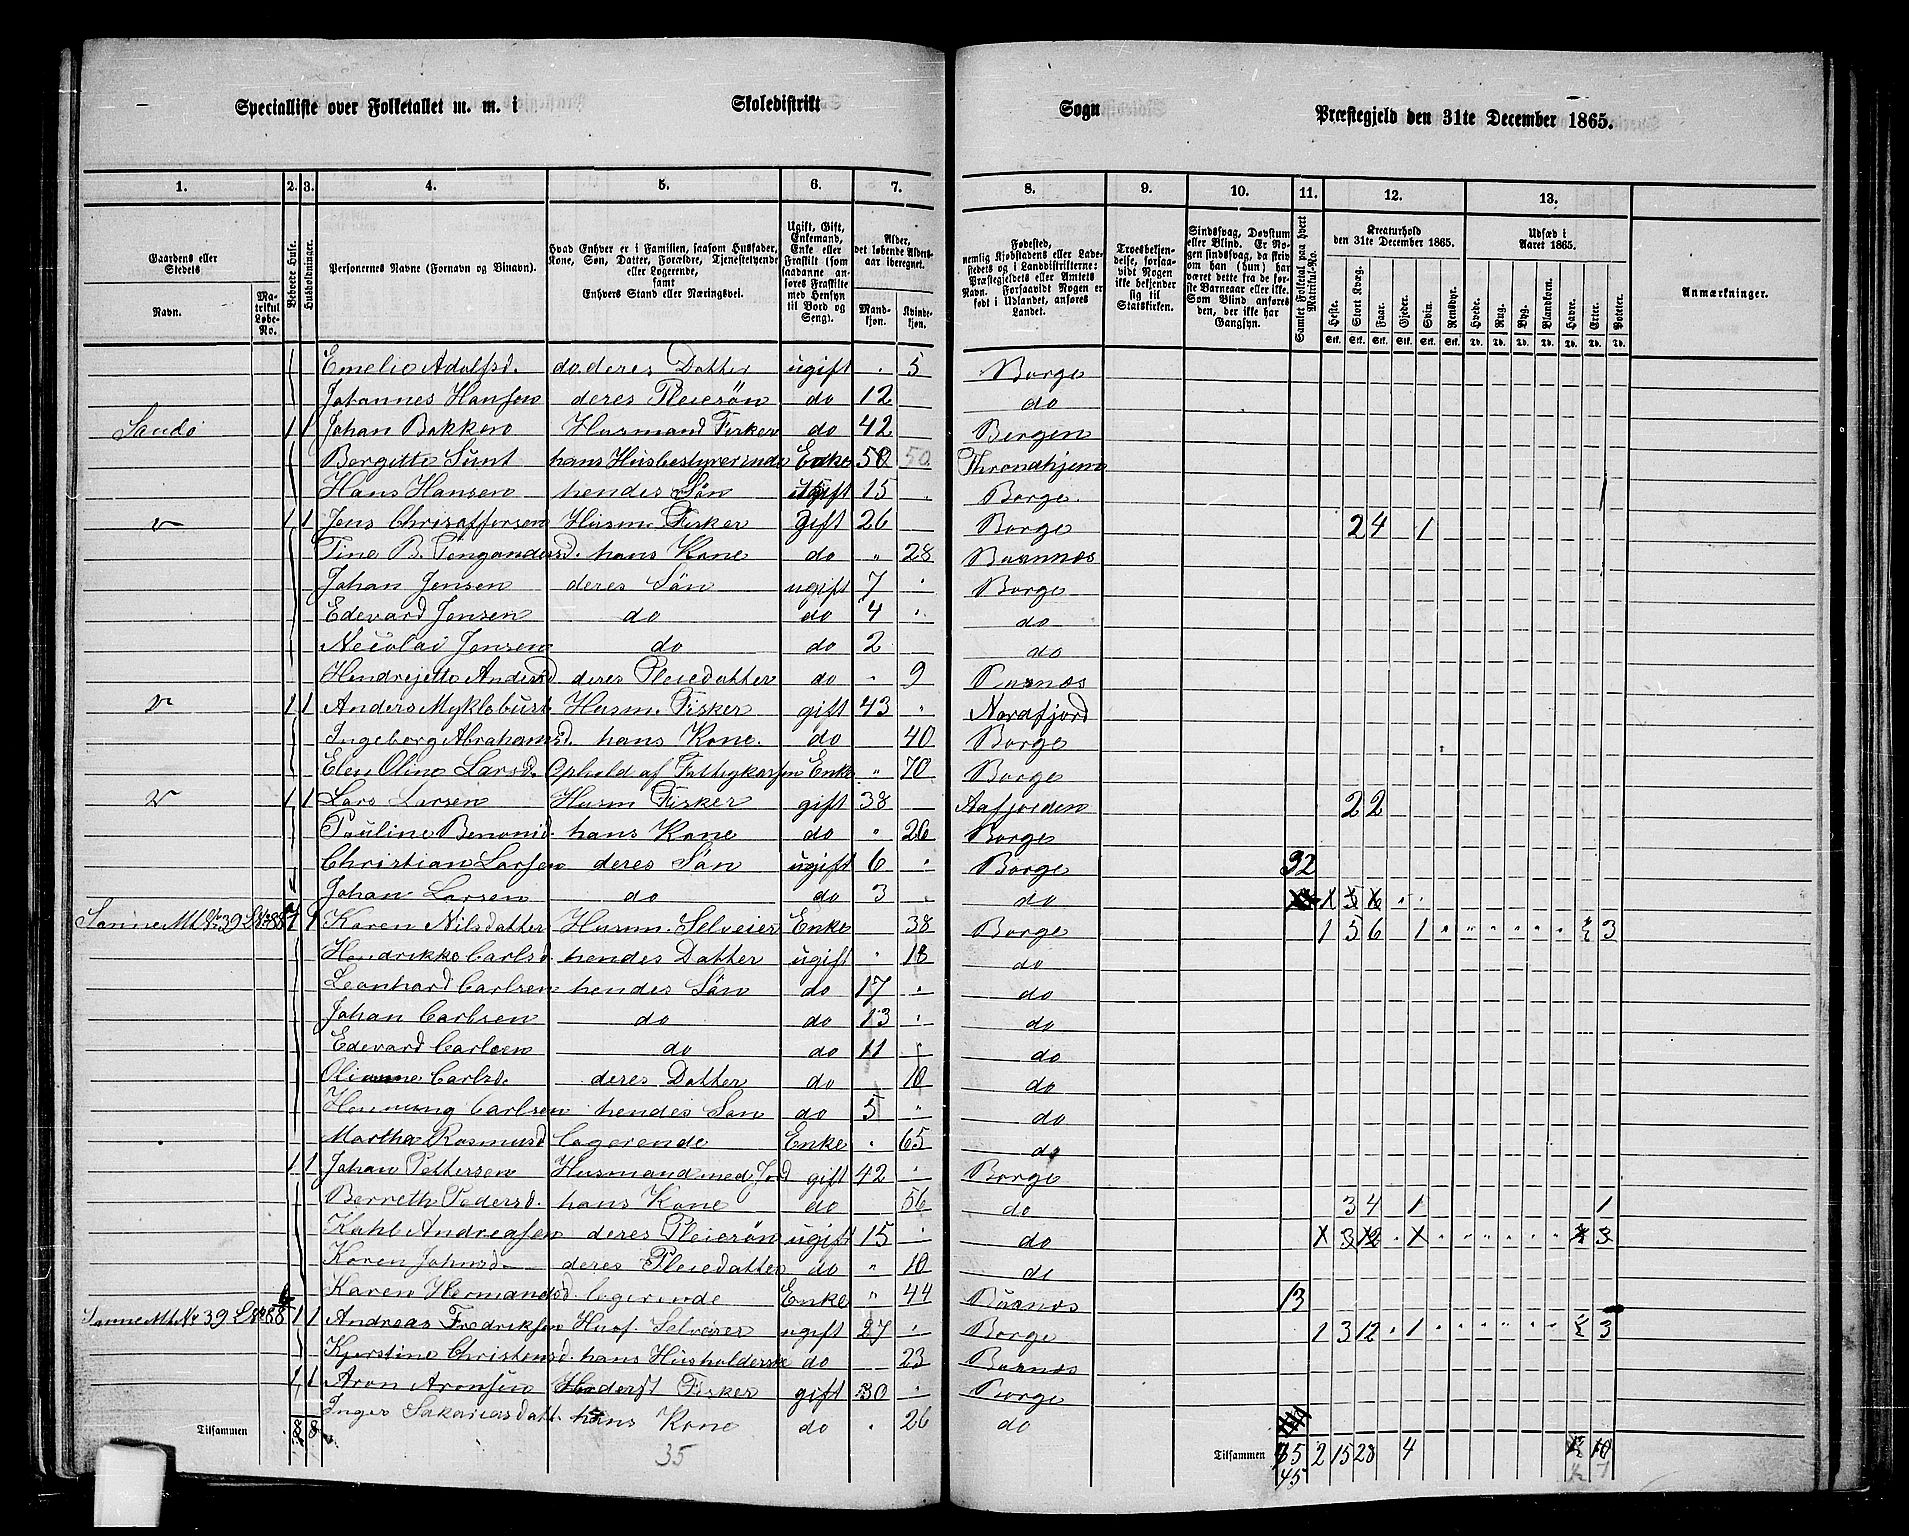 Specialliste over Folketallet m. m. i Skoledistrikt Sogn Præstegjeld den 31te December 1865.
1. 2. 3. 4. 5. 6. 7. 8. 9. 10. 11. 12. 13.
Gaardens eller Stedets
Navn.
Matrikul Løbe-No.
Beboede Huse.
Husholdninger.
Personernes Navne (Fornavn og Tilnavn).
Hvad Enhver er i Familien, saasom Husfader, Kone, Søn, Datter, Forældre, Tjenestetyende eller Logerende, samt Enhvers Stand eller Næringsvei.
Ugift, Gift, Enkemand, Enke eller Fraskilt (som saadanne anføres Fraskilte med Hensyn til Bord og Seng).
Alder, det løbende Alders-aar iberegnet.
Mandkjøn. Kvindekjøn.
Fødested, nemlig Kjøbstadens eller Ladestedets og i Landdistrikterne: Præstegjeldets eller Amtets Navn. Forsaavidt Nogen er født i Udlandet, anføres Landet.
Troesbekjendelse, forsaavidt Nogen ikke bekjender sig til Statskirken.
Sindssvag, Døvstum eller Blind. Er Nogen sindssvag, da skriv om han (hun) har været dette fra de første Barneaar eller ikke. Som Blind anføres den, der ikke har Gangsyn.
Samlet Folketal paa hvert Matrikul-No.
Kreaturhold den 31te December 1865.
Heste. Stort Kvæg. Faar. Gjeder. Svin. Rensdyr.
Udsæd i Aaret 1865.
Hvede. Rug. Byg. Blandkorn. Havre. Erter. Poteter.
Anmærkninger.
Emelie Adolfsd. do deres Datter ugift " 5 Borge
Johannes Hansen deres Pleiesøn do 12 do
Sandø 1 1 Johan Bakken Husmand Fisker do 42 Bergen
Bergitte Sunt hans Husbestyrerinde Enke 50 50 Throndhjem
Hans Hansen hendes Søn ugift 15 Borge
v 1 1 Jens Christoffersen Husm. Fisker gift 26 Borge 2 4 1
Tine B. hans Kone do " 28 Buxnæs
Johan Jensen deres Søn ugift 7 Borge
Edevard Jensen do do 4 do
Nicolai Jensen do do 2 do
Hendrijette Andersd deres Pleiedatter do " 9 Buxnæs
v 1 1 Anders Myklebust Husm. Fisker gift 43 Nordfjord
Ingeborg Abrahamsd. hans Kone. do 40 Borge
Elen Oline Larsd. Ophold af Fattigkassen Enke " 70 Borge
v 1 1 Lars Larsen Husm Fisker gift 38 Aafjorden 2 2
Pauline Benonid. hans Kone do " 26 Borge
Christian Larsen deres Søn ugift 6 Borge 32
Johan Larsen do do 3 do
Sanne Mt No 39 LNo 88a 1 1 Karen Nilsdatter Husm. Selveier Enke 38 Borge 1 5 6 1 " " " " " 3
Hendrikke Carlsd. hendes Datter ugift " 18 do
Leonhard Carlsen hendes Søn do 17 do
Johan Carlsen do do 13 do
Edevard Carlsen do do 11 do
Olianne Carlsd. deres Datter do 10 do
Henning Carlsen hendes Søn do 5 " do
Martha Rasmusd logerende Enke " 65 do
1 1 Johan Pettersen Husmand med Jord gift 42 Borge
Berreth Pedersd. hans Kone do 56 do 3 4 1 1
Kahl Andreasen deres Pleiesøn ugift 15 do
Karen Johnsd deres Pleiedatter do " 10 do
Karen Hermandsd. logerende Enke " 44 Buxnæs 13
Sanne Mt No 39 LNo 88b 1 1 Andreas Fredriksen Husf. Selveier ugift 27 Borge 1 3 12 " 1 " " " " " 3
Kjerstine Christensd. hans Husholderske do 23 Buxnæs
1 1 Aron Aronsen Fisker gift 30 Borge
Inger Sakariasdatt hans Kone do " 26 do
Tilsammen 8 8 35
Tilsammen 2 15 28 4 10
45 7